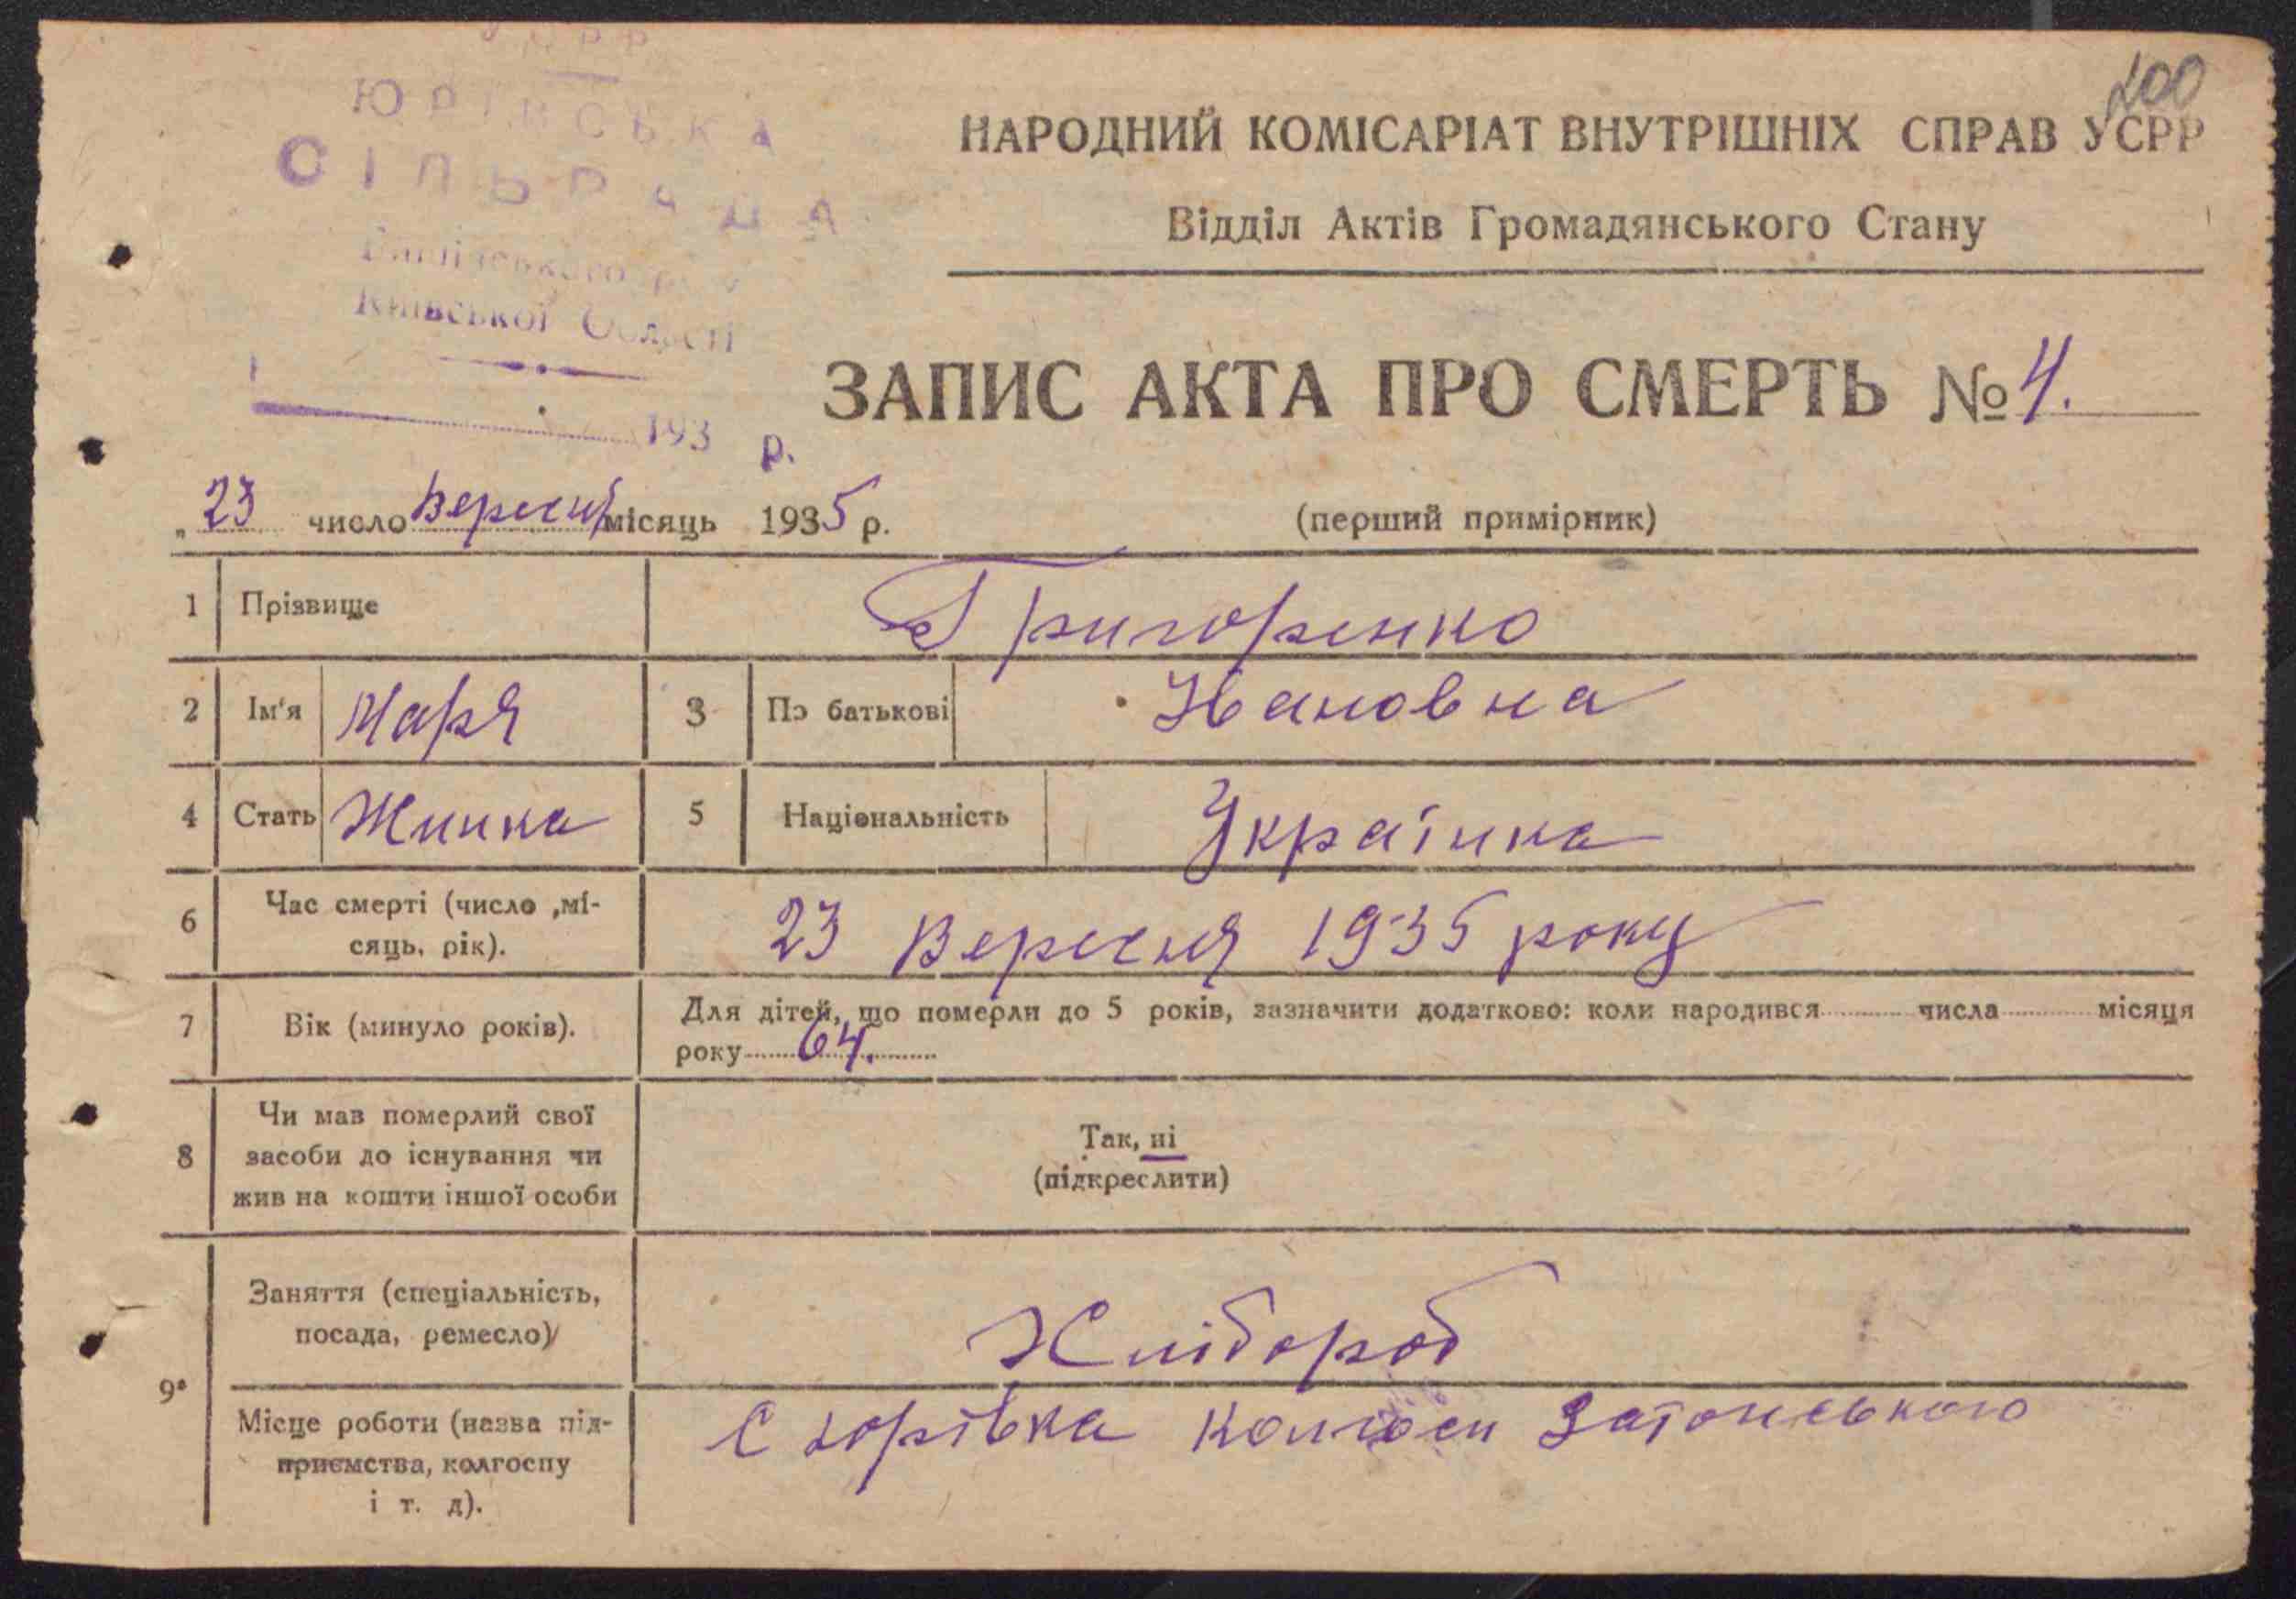 УСРР
ЮРІВСЬКА
СІЛЬРАДА
Київської Області
193 р.
200
НАРОДНИЙ КОМІСАРІАТ ВНУТРІШНІХ СПРАВ УСРР
Відділ Актів Громадянського Стану
ЗАПИС АКТА ПРО СМЕРТЬ № 4.
„ 23 число Вересня місяць 1935 р.
(перший примірник)
1 Прізвище Григоренко
2 Ім'я Маря 3 По батькові Івановна
4 Стать Жинка 5 Національність Українка
6 Час смерті (число ,мі-
сяць, рік). 23 Вересня 1935 року
7 Вік (минуло років). Для дітей, що померли до 5 років, зазначити додатково: коли народився числа місяця
року 64.
8 Чи мав померлий свої
засоби до існування чи
жив на кошти іншої особи
Так, ні
(підкреслити)
9
Заняття (спеціальність,
посада, ремесло) Хлібороб
Місце роботи (назва під-
приємства, колгоспу
і т. д).
С Юрівка колгосп Затонського